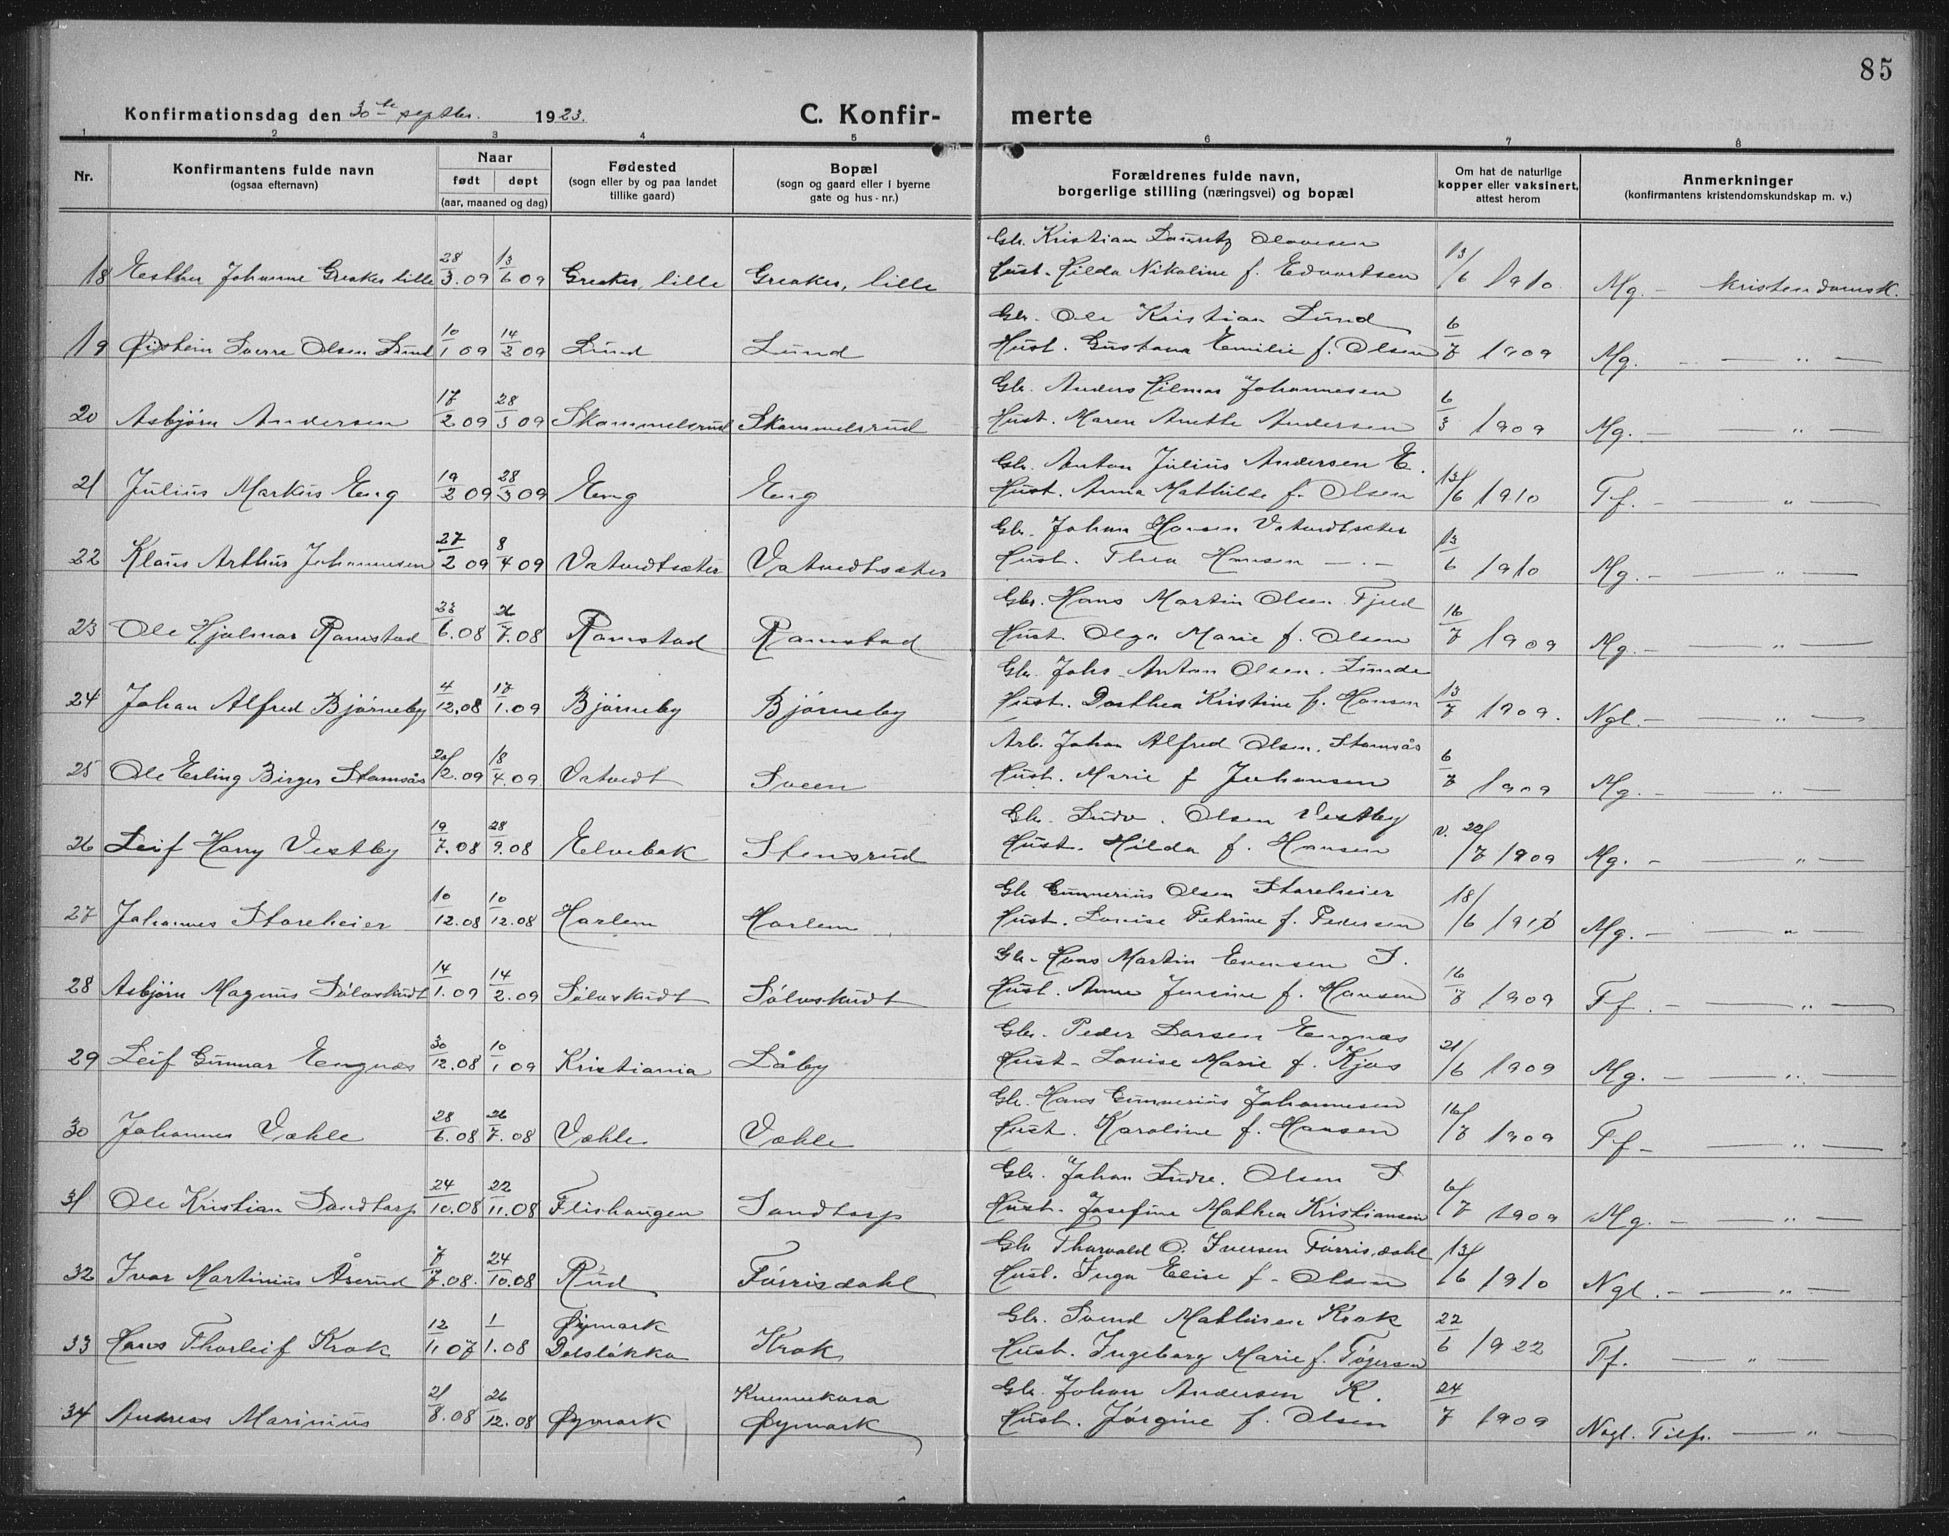 85
Konfirmationsdag den 30te septbr. 1923.
C. Konfir- merte
1 2 3 4 5 6 7 8
Nr.
Konfirmantens fulde navn
(ogsaa efternavn)
Naar
født døpt
(aar, maaned og dag)
Fødested
(sogn eller by og paa landet
tillike gaard)
Bopæl
(sogn og gaard eller i byerne
gate og hus-nr.)
Forældrenes fulde navn,
borgerlige stilling (næringsvei) og bopæl
Om hat de naturlige
kopper eller vaksinert,
attest herom
Anmerkninger
(konfirmantens kristendomskundskap m. v.)
Gbr. Kristian Lauritz Olavesen
18 Esther Johanne Greaker lille 28/3.09 13/6 09 Greaker, lille Greaker, lille Hust. Hilda Nikoline f. Edvartsen 13/6 1910 Mg. — kristendomsk.
Gbr. Ole Kristian Lund
19 Øistein Sverre Olsen Lund 10/1 09 14/2 09 Lund Lund Hust. Gustava Emilie f. Olsen 6/7 1909 Mg. — „ —
Gbr. Anders Hilmar Johannesen
20 Asbjørn Andersen 17/2 09 28/3 09 Skammelsrud Skammelsrud Hust. Maren Anette Andersen 6/3 1909 Mg. — „ —
Gbr. Anton Julius Andersen E.
21 Julius Markus Eng 19/2 09 28/3 09 Eng Eng Hust. Anna Mathilde f. Olsen 13/6 1910 Tf. — „ —
Gbr. Johan Hansen Vatvedtsæter
22 Klaus Arthur Johannesen 27/2 09 8/4 09 Vatvedtsæter Vatvedtsæter Hust. Thea Hansen — . — 13/6 1910 Mg. — „ —
Gbr. Hans Martin Olsen Fjeld
23 Ole Hjalmar Ramstad 23/6.08 26/7.08 Ramstad Ramstad Hust. Olga Marie f. Olsen 16/7 1909 Mg. — „ —
Gbr. Johs. Anton Olsen. Lunde
24 Johan Alfred Bjørneby 4/12.08 17/1.09 Bjørneby Bjørneby Hust. Dorthea Kristine f. Hansen 13/7 1909. Ngl. — „ —
Arb. Johan Alfred Olsen. Stamsås
25 Ole Erling Birger Stamsås 20/2.09 18/4.09 Vatvedt Sveen Hust. Marie f Johansen 6/7 1909 Mg. — „ —
Gbr. Ludv. Olsen Vestby
26 Leif Harry Vestby 19/7.08 28/9.08 Elvebak Stensrud Hust. Hilda f. Hansen v. 22/7 1909 Mg. — „ —
Gbr Gunnerius Olsen Storeheier
27 Johannes Storeheier 10/12.08 10/12.08 Harlem Harlem Hust. Lovise Petrine f. Pedersen 18/6 1910 Mg. — „ —
Gbr. Hans Martin Evensen S.
28 Asbjørn Magnus Sølvskudt 14/1.09 14/2.09 Sølvskudt Sølvskudt Hust. Anna Jensine f. Hansen 16/7 1909 Tf. — „ —
Gbr. Peder Larsen Engnæs
29 Leif Gunnar Engnæs 30/12.08 10/1 09 Kristiania Låby Hust. Lovise Marie f. Kjos 21/6 1909 Mg. — „ —
Gbr. Hans Gunnerius Johannesen
30 Johannes Væhle 28/6.08 26/7.08 Væhle Væhle Hust. Karoline f. Hansen 16/7 1909 Tf — „ —
Gbr. Johan Ludv. Olsen S
31 Ole Kristian Sandtorp 24/10.08 22/11.08 Flishaugen Sandtorp Hust. Josefine Mathea Kristiansen 6/7 1909 Mg. — „ —
Gbr Thorvald O. IversenFørrisdahl
32 Ivar Martinius Åserud 7/7.08. 24/10.08 Rud Førrisdahl Hust. Inga Elise f. Olsen 13/6 1910 Ngl. — „ —
Øymark Gbr. Svend Mathisen Krok
33 Hans Thorleif Krok 12/11 07 1/1.08 Dalsløkka Krok Hust. Ingeborg Marie f. Tøjersen 22/6 1922 Tf. — „ —
Gbr. Johan Andersen K.
34 Andreas Marinius 21/8.08 26/12.08 Øymark Øymark Hust. Jørgine f. Olsen 24/7 1909 Nogl. Tilfr. — „ —